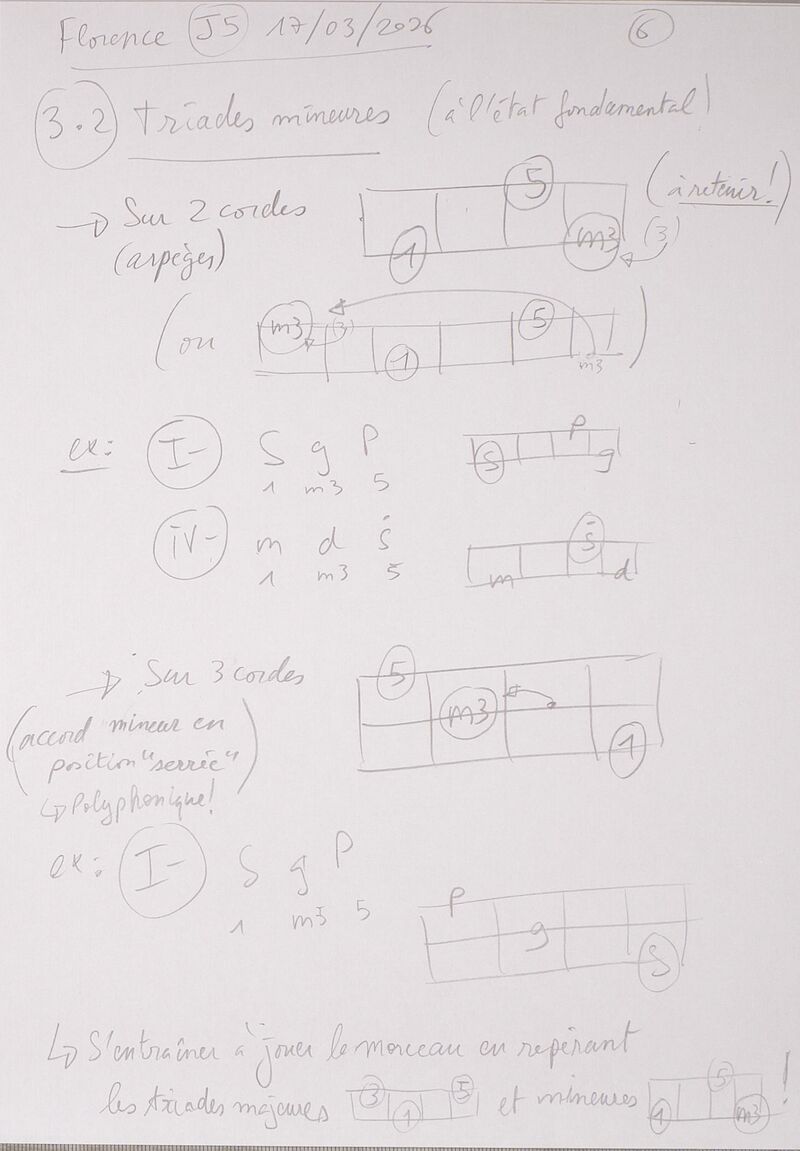 Florence J5 17/03/2026 6
3.2 Triades mineures (à l'état fondamental)
→ Sur 2 cordes
(arpèges)
5
1 m3 (3)
(à retenir!)
(ou
m3 (3) 5
1 m3
)
ex: I- S g P
1 m3 5
P
S g
IV- m d ṡ
1 m3 5
ṡ
m d
→ Sur 3 cordes
(accord mineur en
position "serrée"
↳ Polyphonique!)
5
m3
1
ex: I- S g P
1 m3 5
P
g
S
↳ S'entraîner à jouer le morceau en repérant
les triades majeures 3 1 5 et mineures 1 5 m3 !